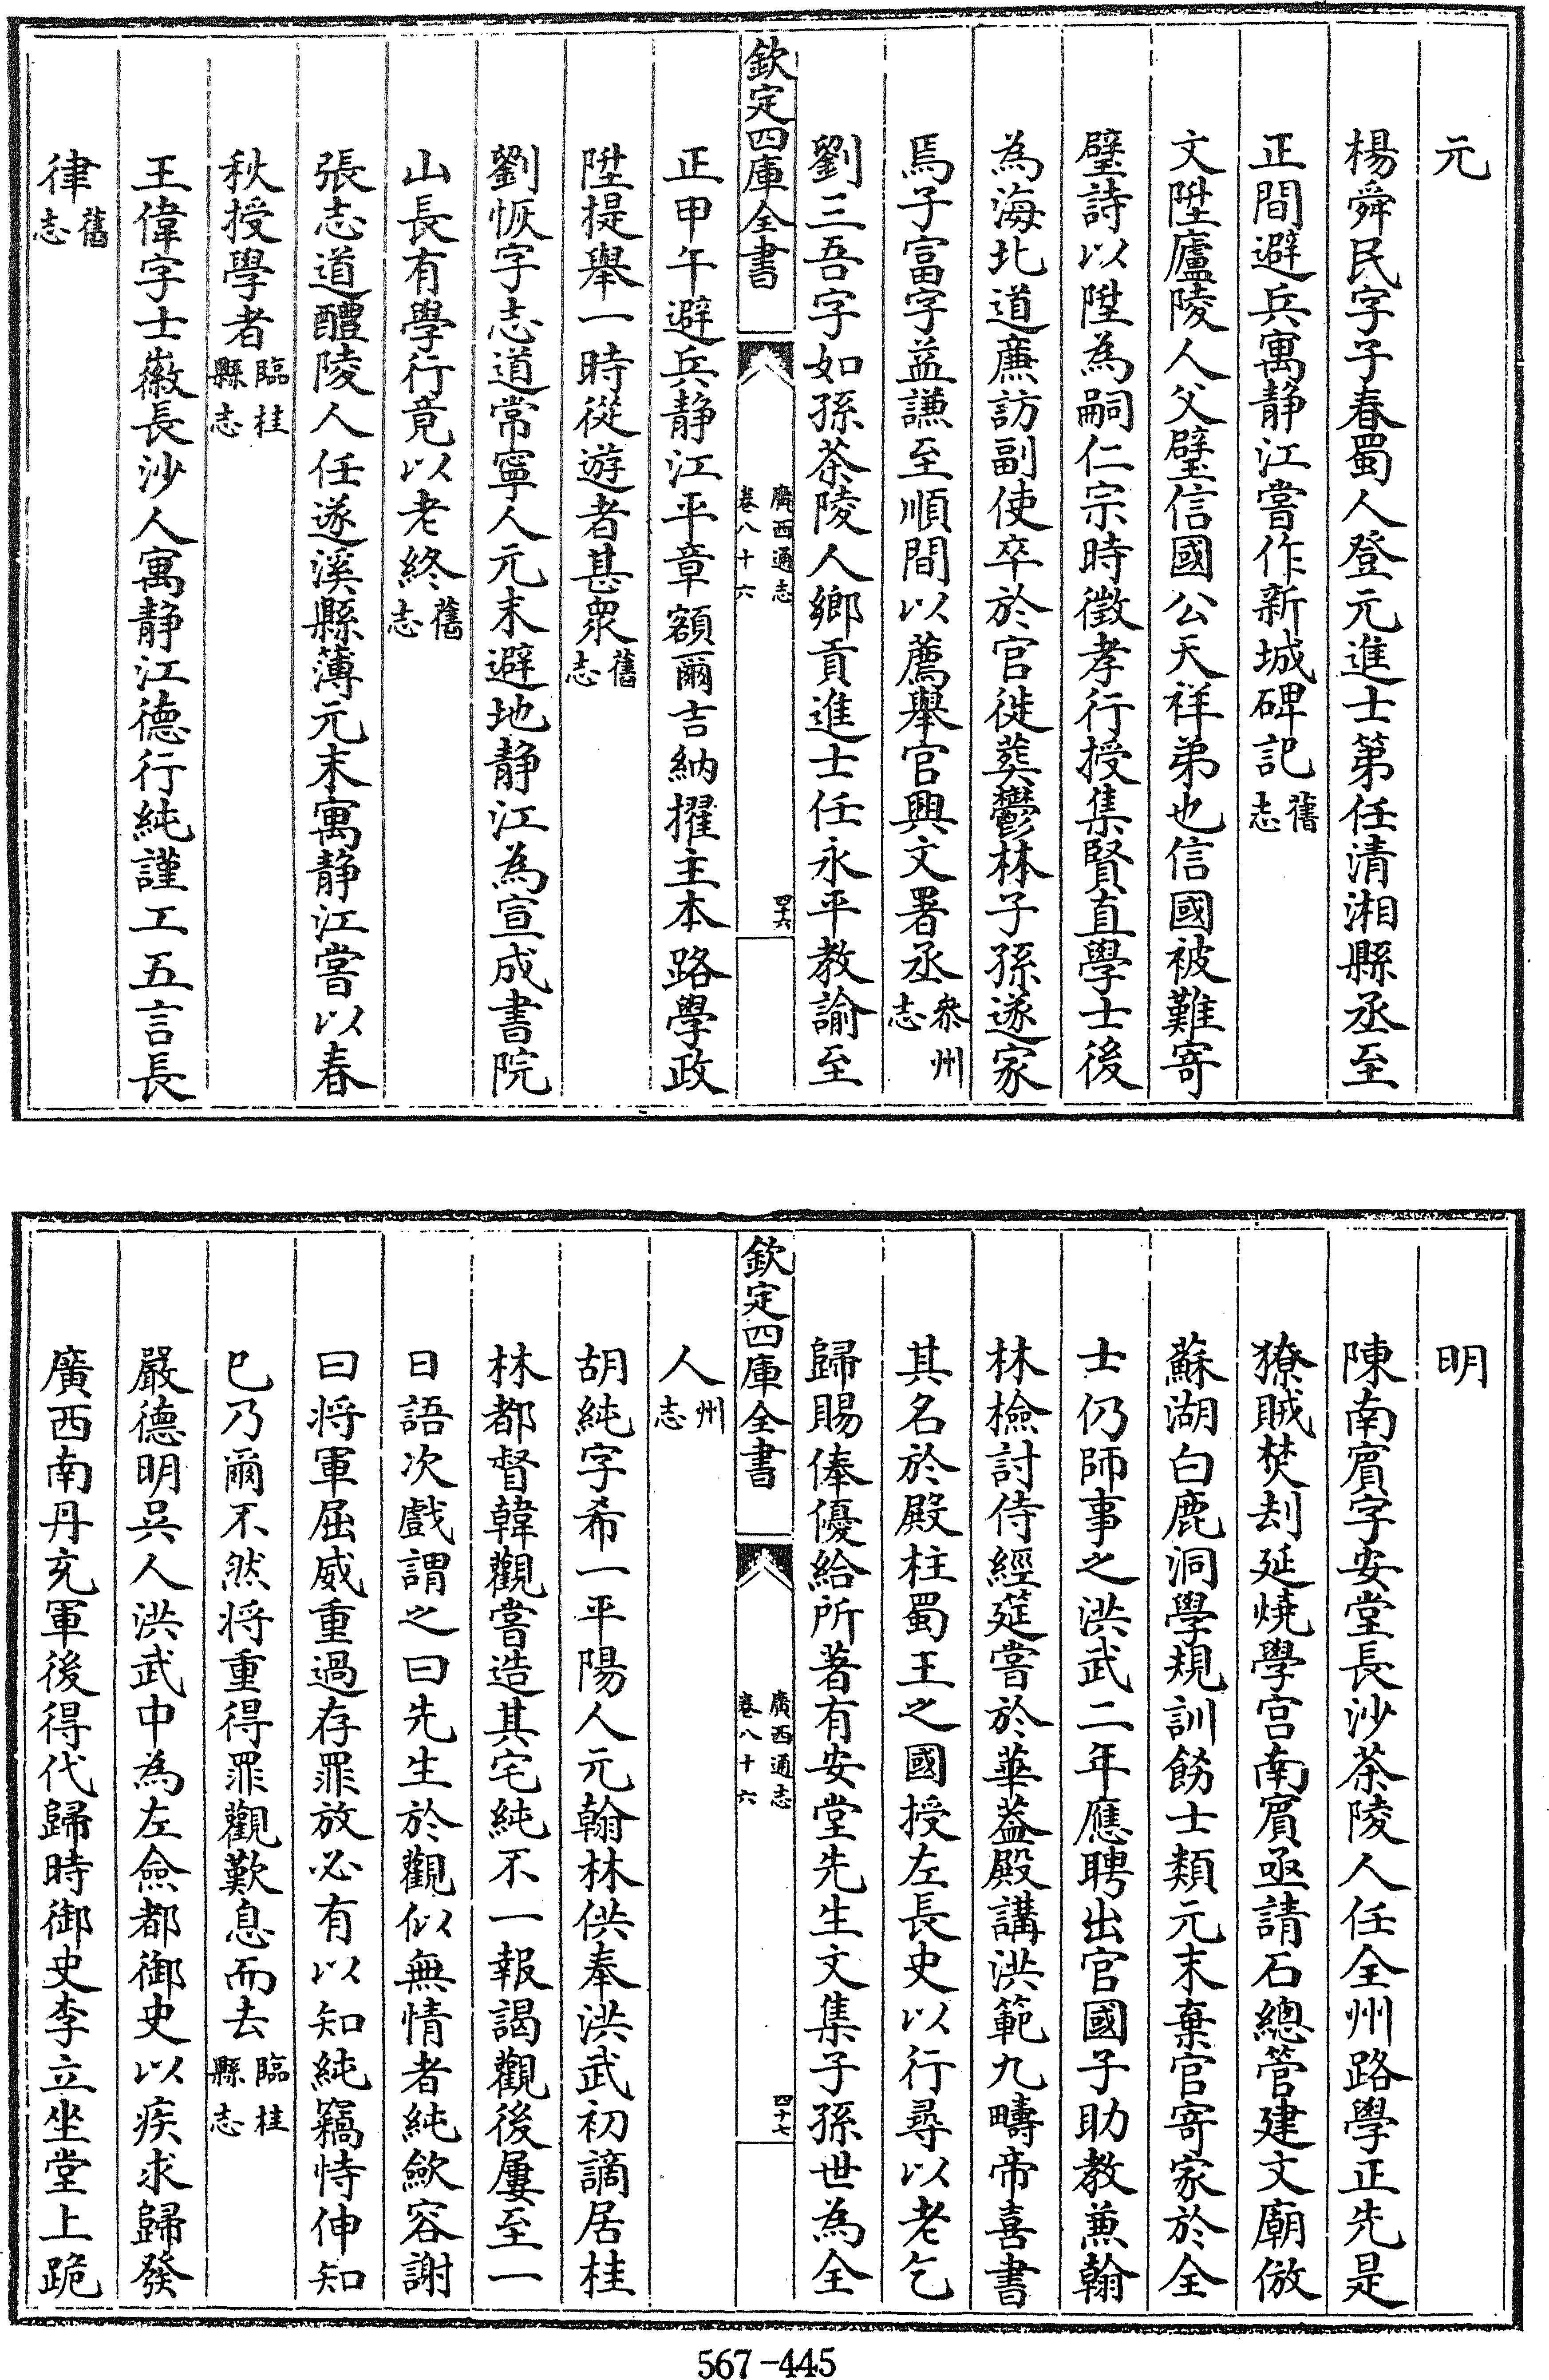 元
楊舜民字子春蜀人登元進士第任清湘縣丞至
正間避兵寓静江嘗作新城碑記舊志
文陞廬陵人父璧信國公天祥弟也信國被難寄
璧詩以陞為嗣仁宗時徵孝行授集賢直學士後
為海北道亷訪副使卒於官徙葬鬱林子孫遂家
焉子富字益謙至順間以薦舉官興文署丞叅州志
劉三吾字如孫茶陵人鄉貢進士任永平教諭至
欽定四庫全書
廣西通志
卷八十六
四十六
正甲午避兵静江平章額爾吉納擢主本路學政
陞提舉一時從遊者甚衆舊志
劉恢字志道常寧人元末避地静江為宣成書院
山長有學行竟以老終舊志
張志道醴陵人任遂溪縣薄元末寓静江嘗以春
秋授學者臨桂縣志
王偉字士徽長沙人寓静江德行純謹工五言長
律舊志
明
陳南賓字安堂長沙茶陵人任全州路學正先是
獠賊焚刦延燒學宫南賓亟請石總管建文廟倣
蘇湖白鹿洞學規訓飭士類元末棄官寄家於全
士仍師事之洪武二年應聘出官國子助教兼翰
林檢討侍經筵嘗於華葢殿講洪範九疇帝喜書
其名於殿柱蜀王之國授左長史以行尋以老乞
歸賜俸優給所著有安堂先生文集子孫世為全
欽定四庫全書
廣西通志
卷八十六
四十七
人州志
胡純字希一平陽人元翰林供奉洪武初謫居桂
林都督韓觀嘗造其宅純不一報謁觀後屢至一
日語次戲謂之曰先生於觀似無情者純歛容謝
曰将軍屈威重過存罪放必有以知純竊恃伸知
已乃爾不然将重得罪觀歎息而去臨桂縣志
嚴德明吳人洪武中為左僉都御史以疾求歸發
廣西南丹充軍後得代歸時御史李立坐堂上跪
567-445